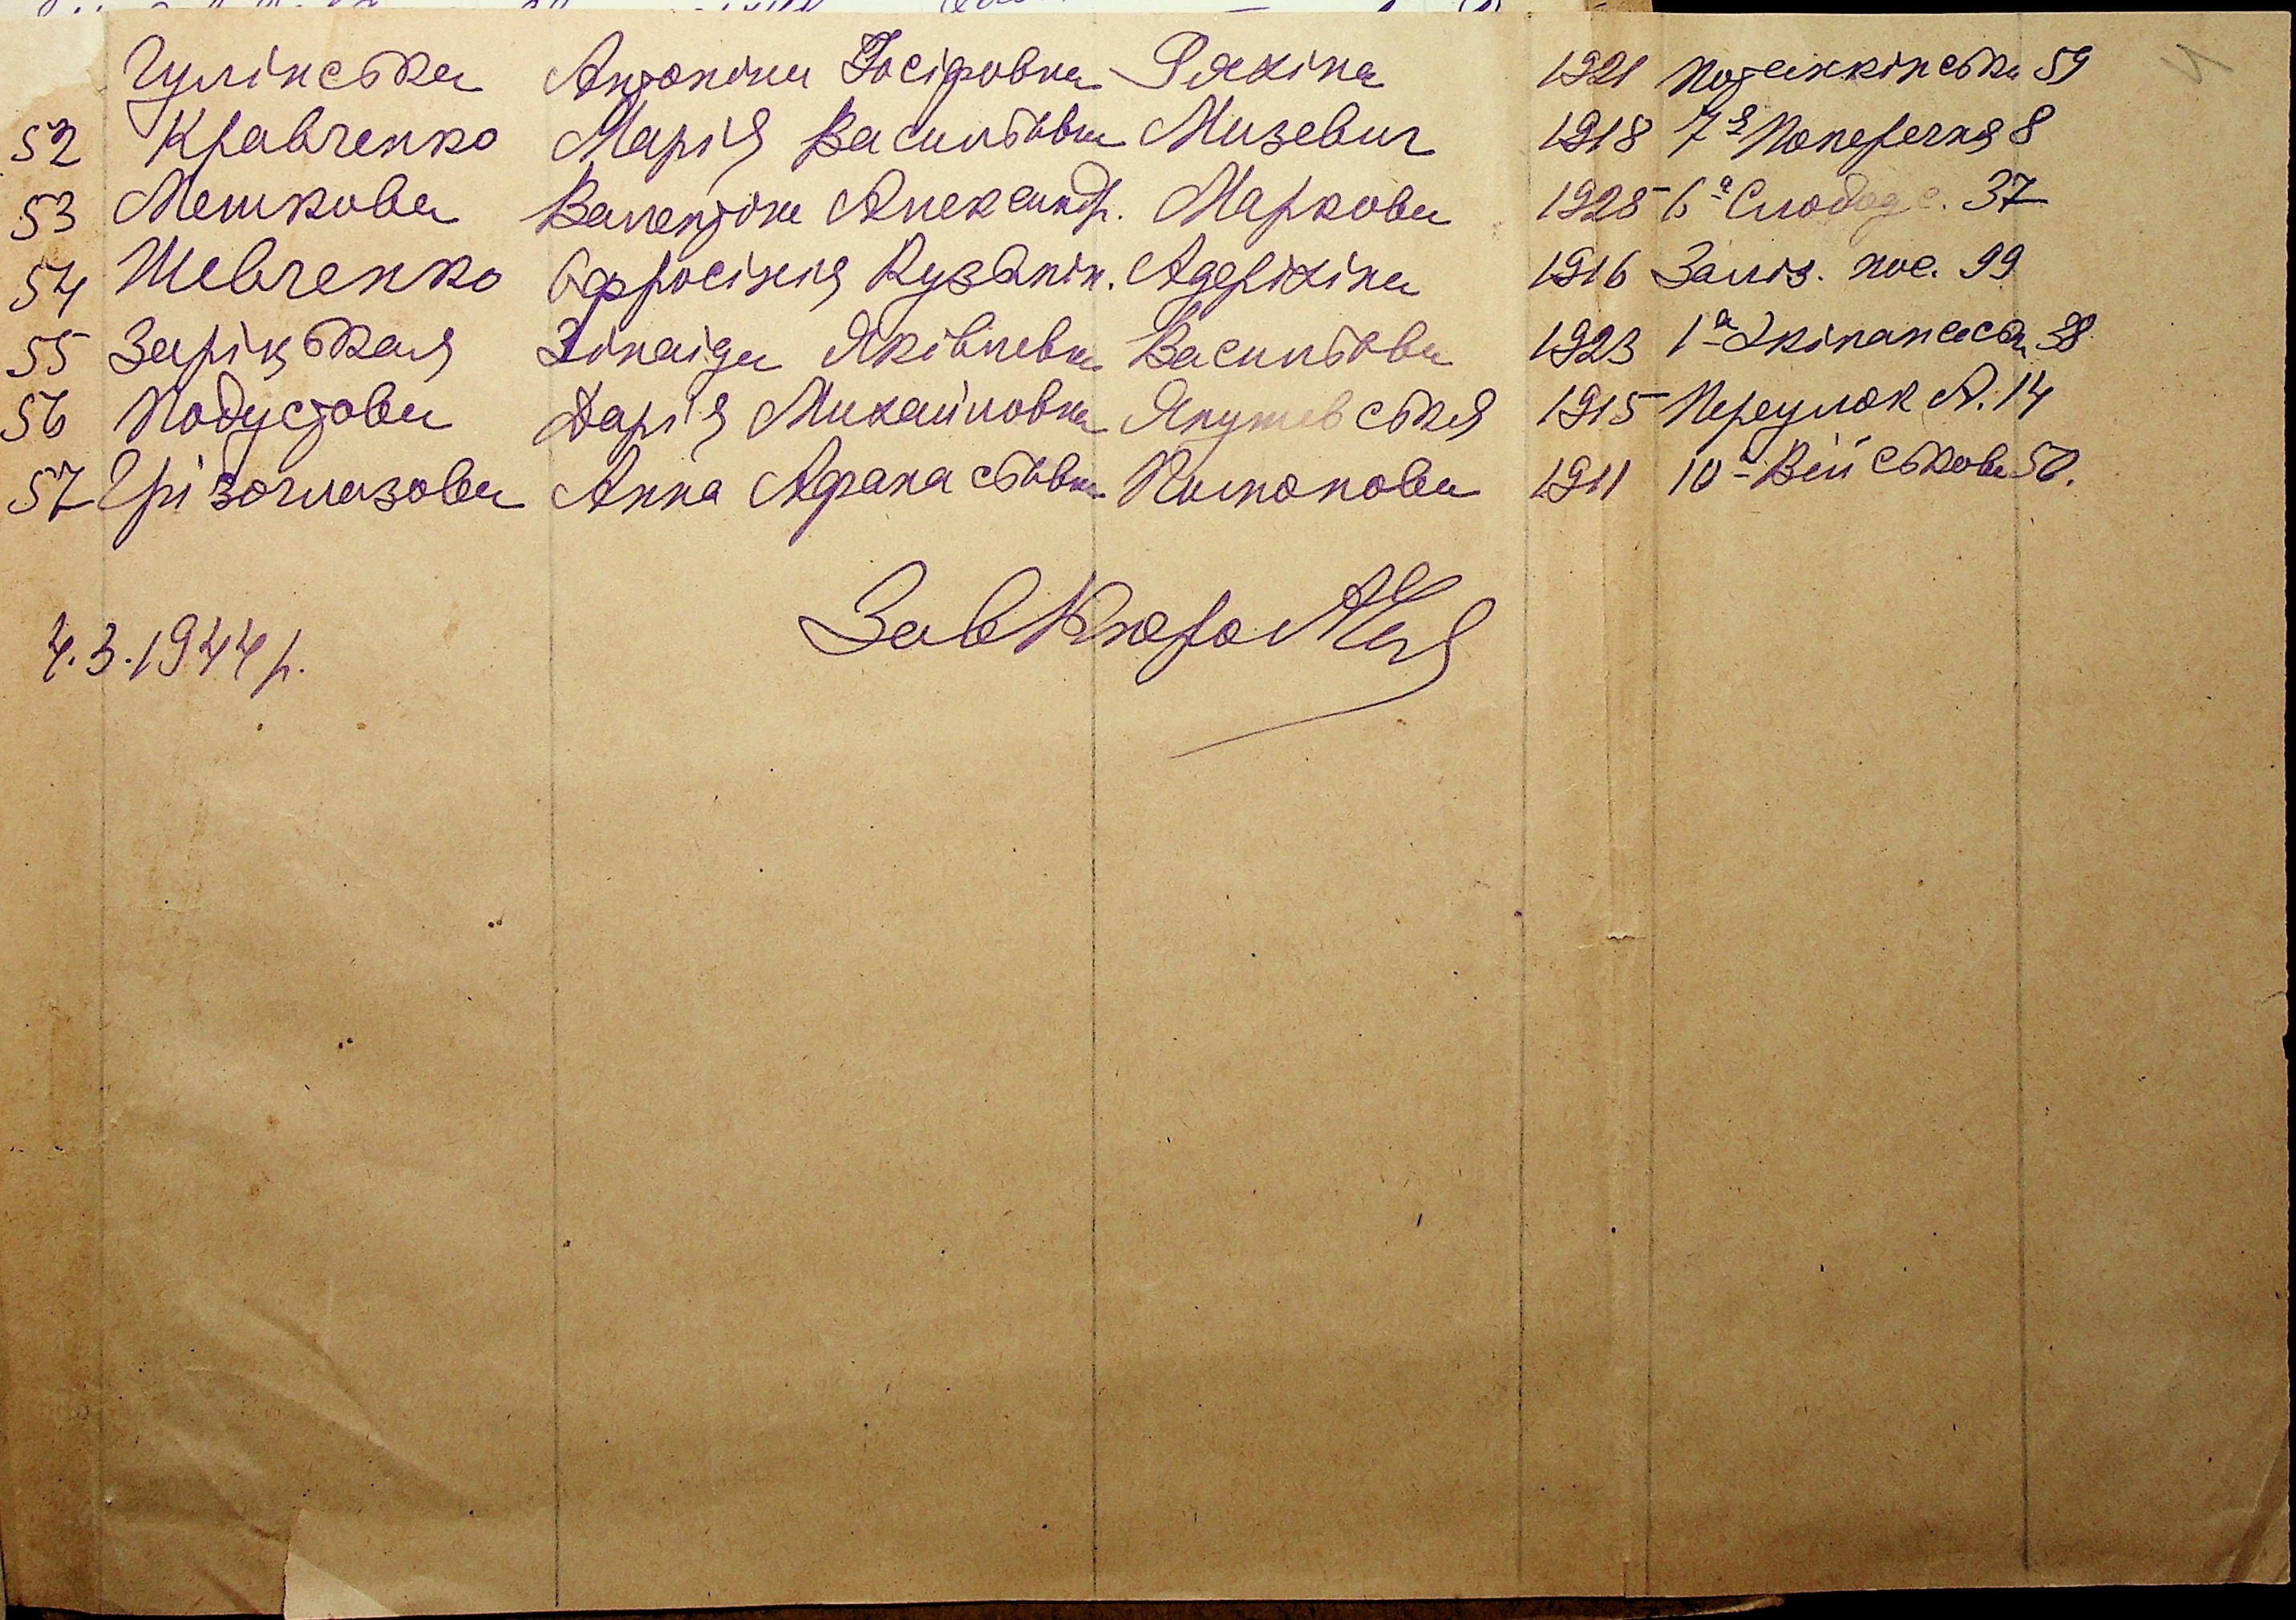 Гулінська Антоніна Йосіфовна Ряхіна 1921 Потемкінська 59
52 Кравченко Марія Васильевна Мизевич 1918 7я Поперечня 8
53 Мешкова Валентіна Александр. Маркова 1928 6а Слободс. 37
54 Шевченко Єфросінія Кузьмін. Адеріхіна 1916 Заліз. пос. 99
55 Заріцькая Зінаіда Яківлевна Васильева 1923 1а Екіпажеська 38
56 Подустова Дарія Михайловна Якушевськя 1915 Переулок А. 14
57 Грізоглазова Анна Афанасьевна Филонова 1911 10а Військова 50.
Зав Бюро
4.3.1944 р.